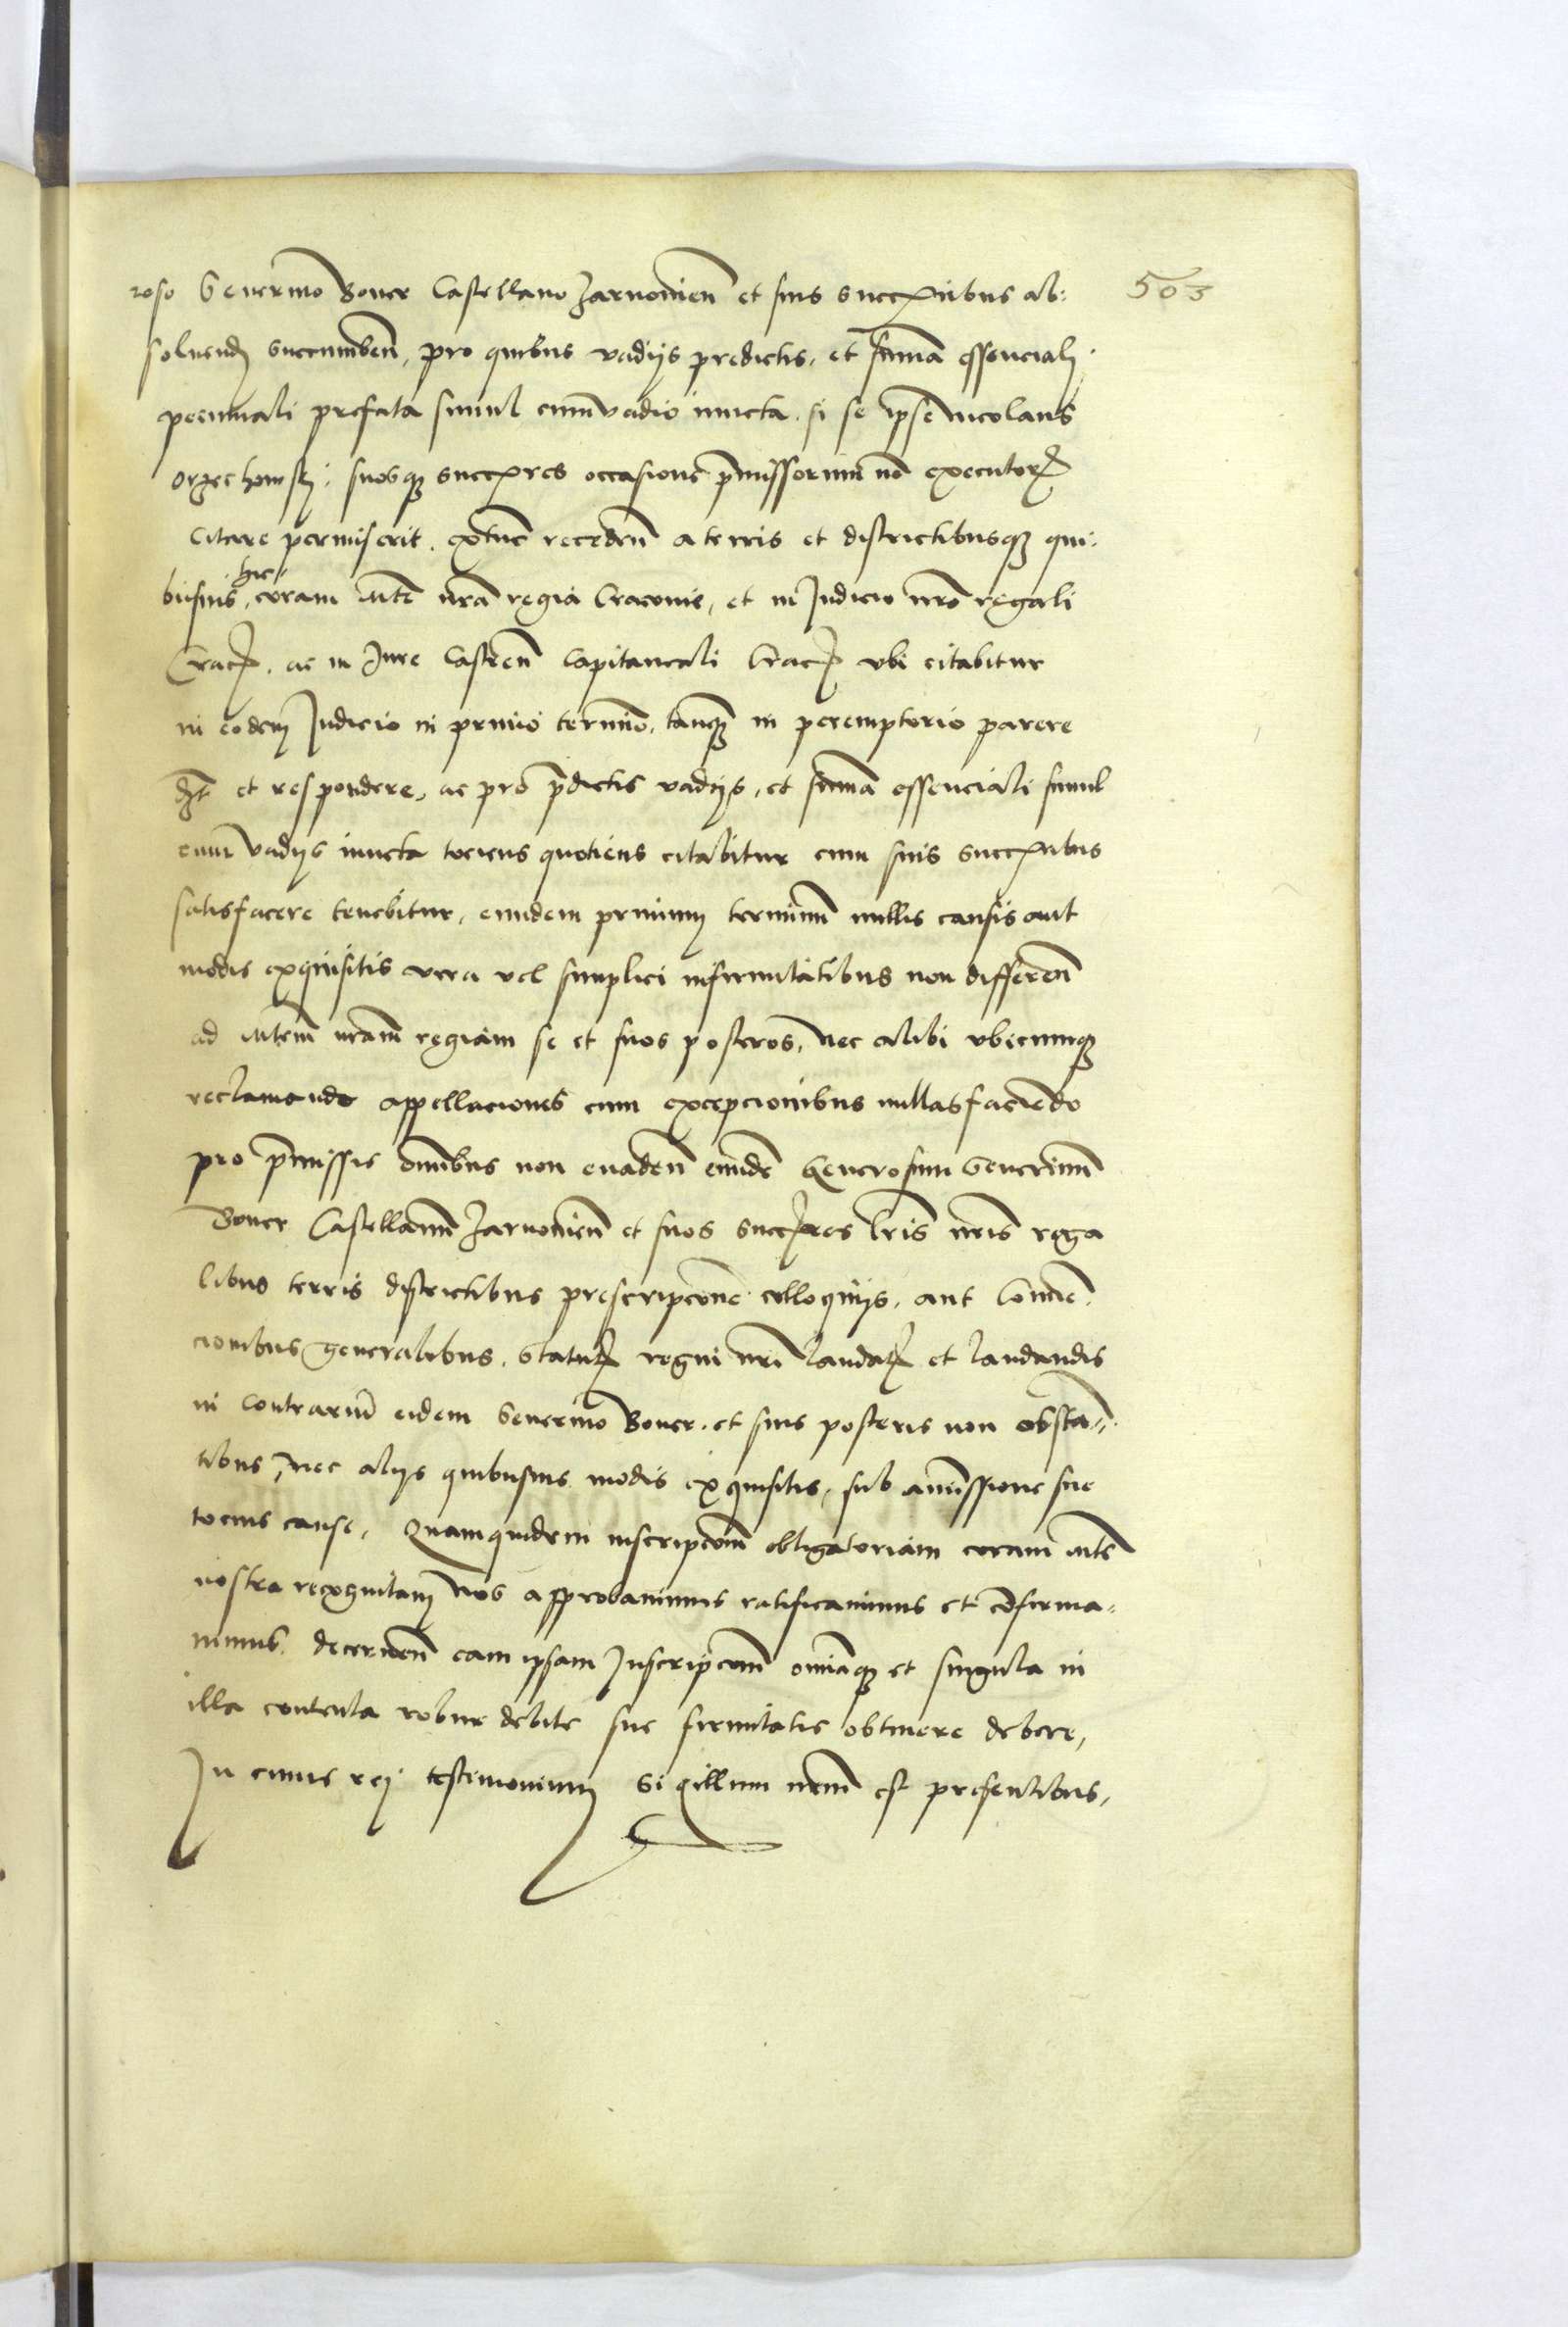 503
roso Severino Boner Castellano Zarnowien̄ et suis succr̄ibus ab:
soluend̄ succumben̄, pro quibus vadijs predictis, et sum̄a essenciali
pecuniali prefata simul cum vadio iuncta. si se ip̄se Nicolaus
Orzechowski: suosq₃ succr̄es occasione p̄missorum nō executor̄
citare permiserit. extunc receden̄ a terris et districtibusq₃ qui:
busuis, hic coram Mte n̄ra regia Cracouie, et in Judicio nr̄o regali
Crac̄. ac in Jure Castren̄ Capitaneali Crac̄ vbi citabitur
in eodem Judicio in primo termino. tanq₃ in peremptorio parere
d₃t et respondere, ac pro p̄dictis vadijs, et sum̄a essenciali simul
cum vadijs iuncta tociens quotiens citabitur cum suis succr̄ibus
satisfacere tenebitur, eundem primum terminum nullis causis aut
modis exquisitis vera vel simplici infirmitatibus non differen̄
ad Mtem nr̄am regiam se et suos posteros, nec alibi vbicumq₃
reclamando appellaciones cum excepcionibus nullas faciendo
pro p̄missis omnibus non euaden̄ eundē Generosum Seuerinum
Boner Castellanum Zarnowien̄ et suos succr̄es lr̄is nr̄is rega
libus terris districtibus prescripcōne colloquijs. aut Conuē.
cionibus generalibus. statut̄ regni nr̄i laudat̄ et laudandis
in contrariū eidem Seuerino Boner. et suis posteris non obstā„
tibus, nec alijs quibusuis modis exquisitis, sub amissione sue
tocius cause, Quamquidem inscripcōm̄ obligatoriam coram Mte
nostra recognitam nos approbauimus ratificauimus et cōfirma„
uimus decernen̄ eam ipsam Inscripcōm̄ omniaq₃ et singula in
illa contenta robur debite sue firmitatis obtinere debere,
In cuius rei testimonium Sigillum nr̄m est presentibus,